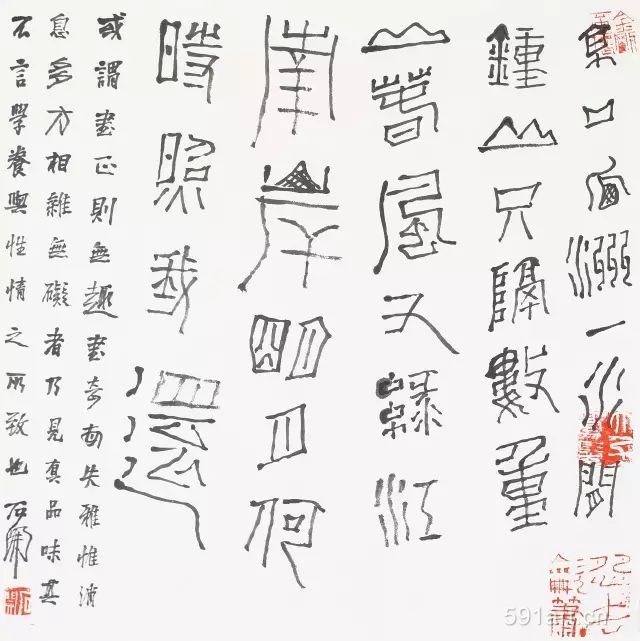 京口瓜洲一水間
鍾山只隔數重
山春風又綠江
南岸明月何
時照我還
或謂書正則無趣書奇而失雅惟消
息多方相雜無礙者乃見真品味其
不言學養與性情之所致也石開